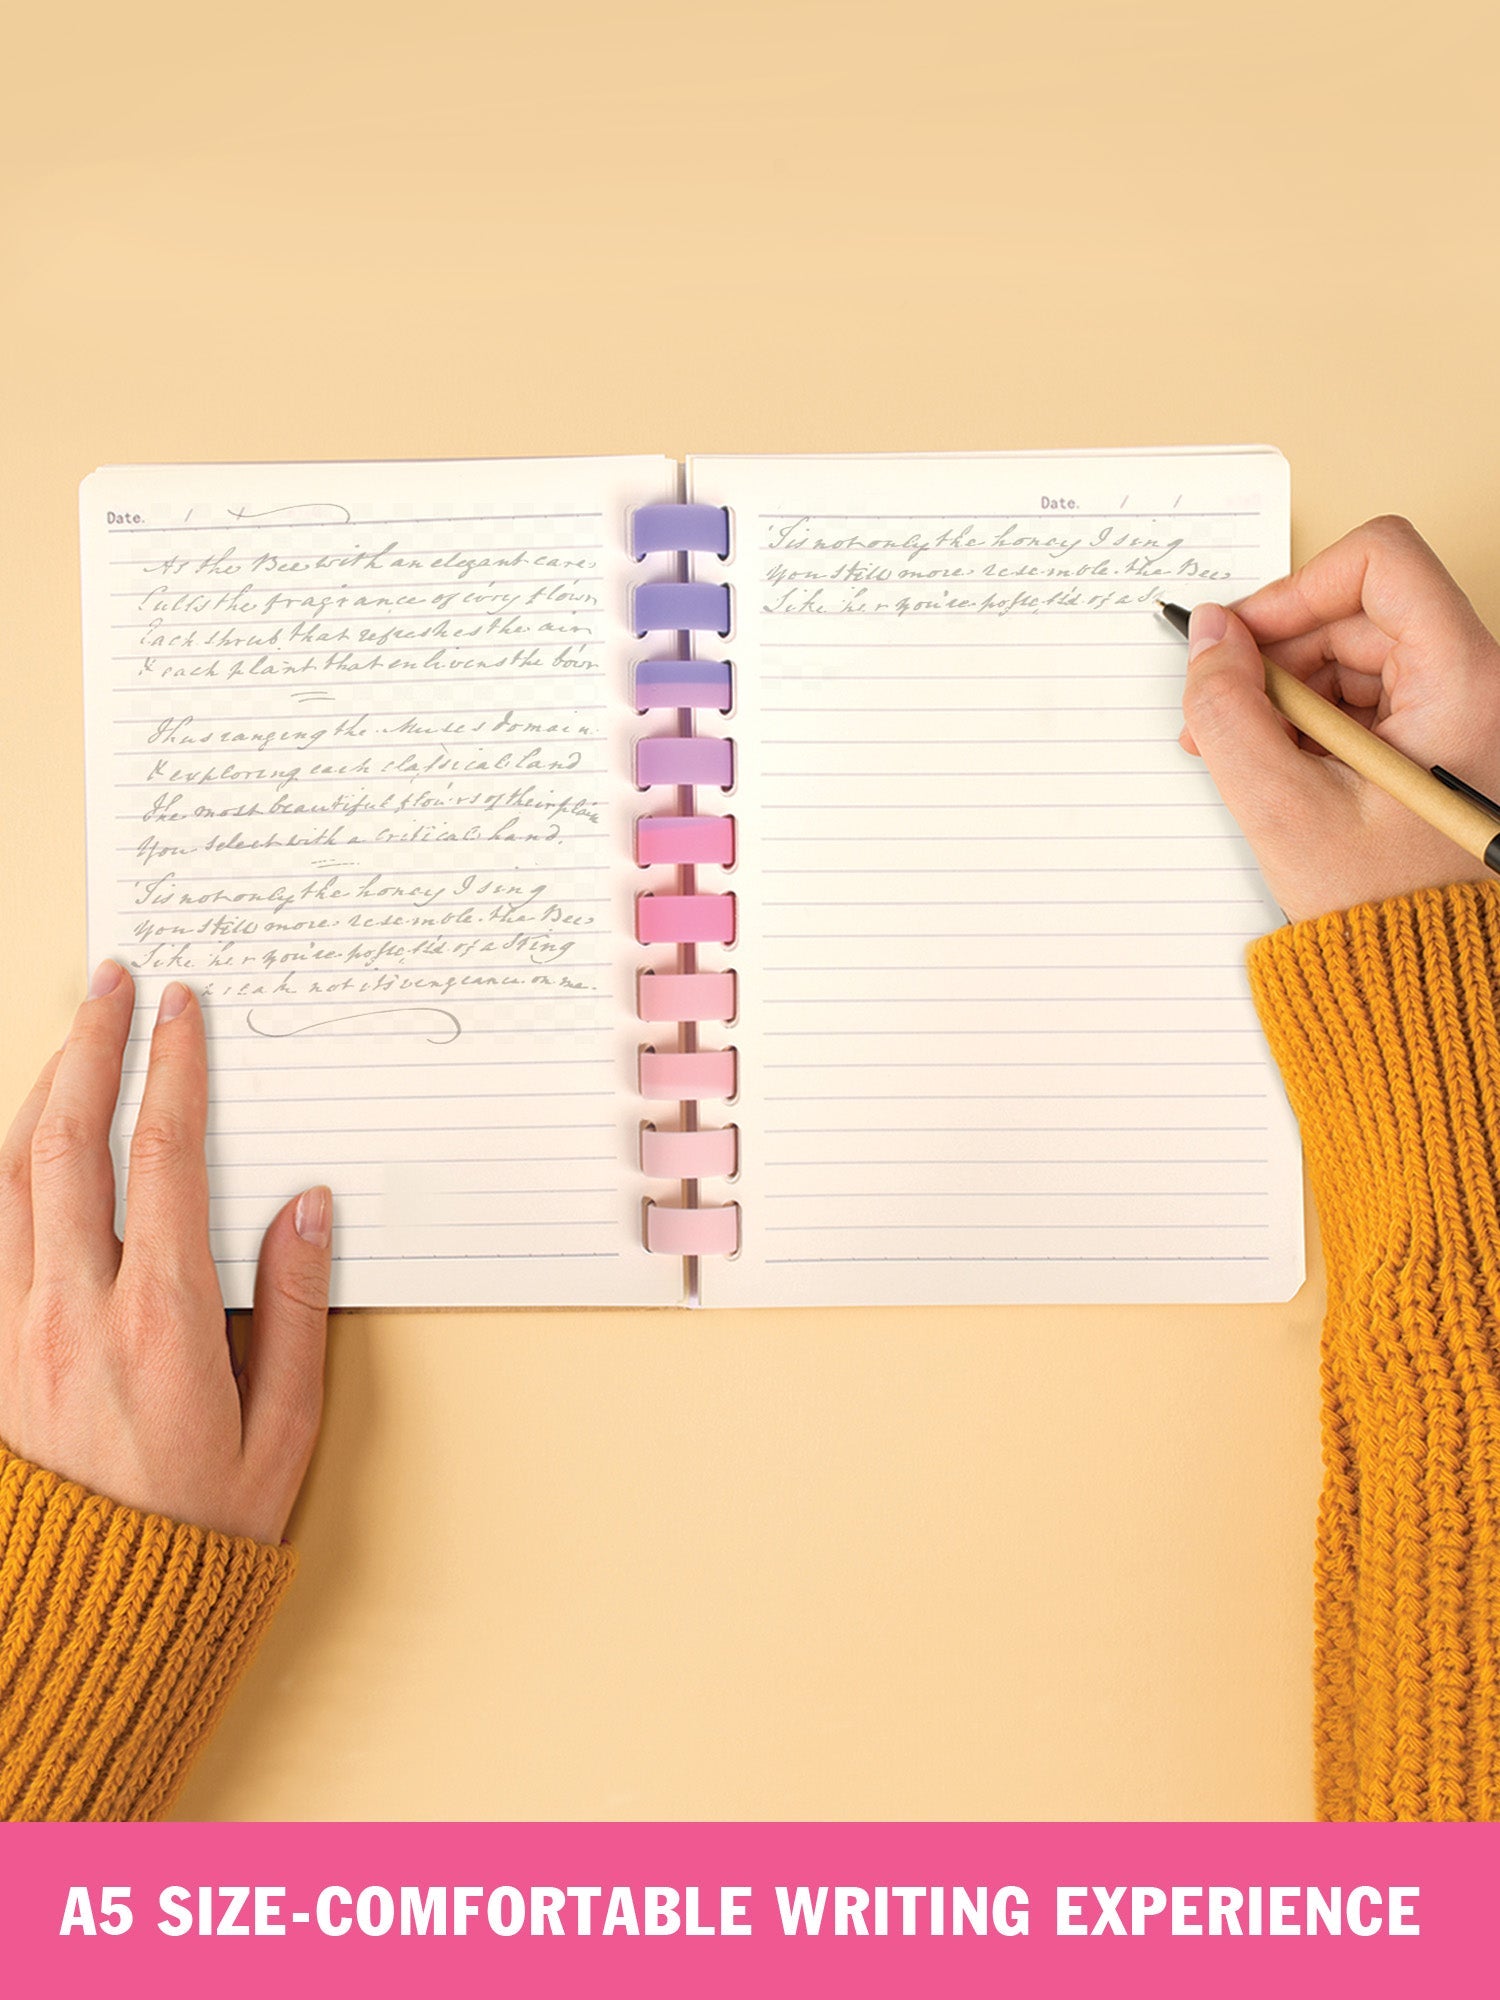 Date. / /
As the Bee with an elegant care
Culls the fragrance of ivory flow'rs
Each shrub that refreshes the air
& each plant that enlivens the bow'r
Thus ranging the Muses domain
& exploring each classical land
The most beautiful flow'rs of their plain
You select with a critical hand.
'Tis not only the honey I sing
You still more resemble the Bee
Like her you're possess'd of a Sting
not its vengeance on me.
Date. / /
'Tis not only the honey I sing
You still more resemble the Bee
Like her you're possess'd of a S
A5 SIZE-COMFORTABLE WRITING EXPERIENCE